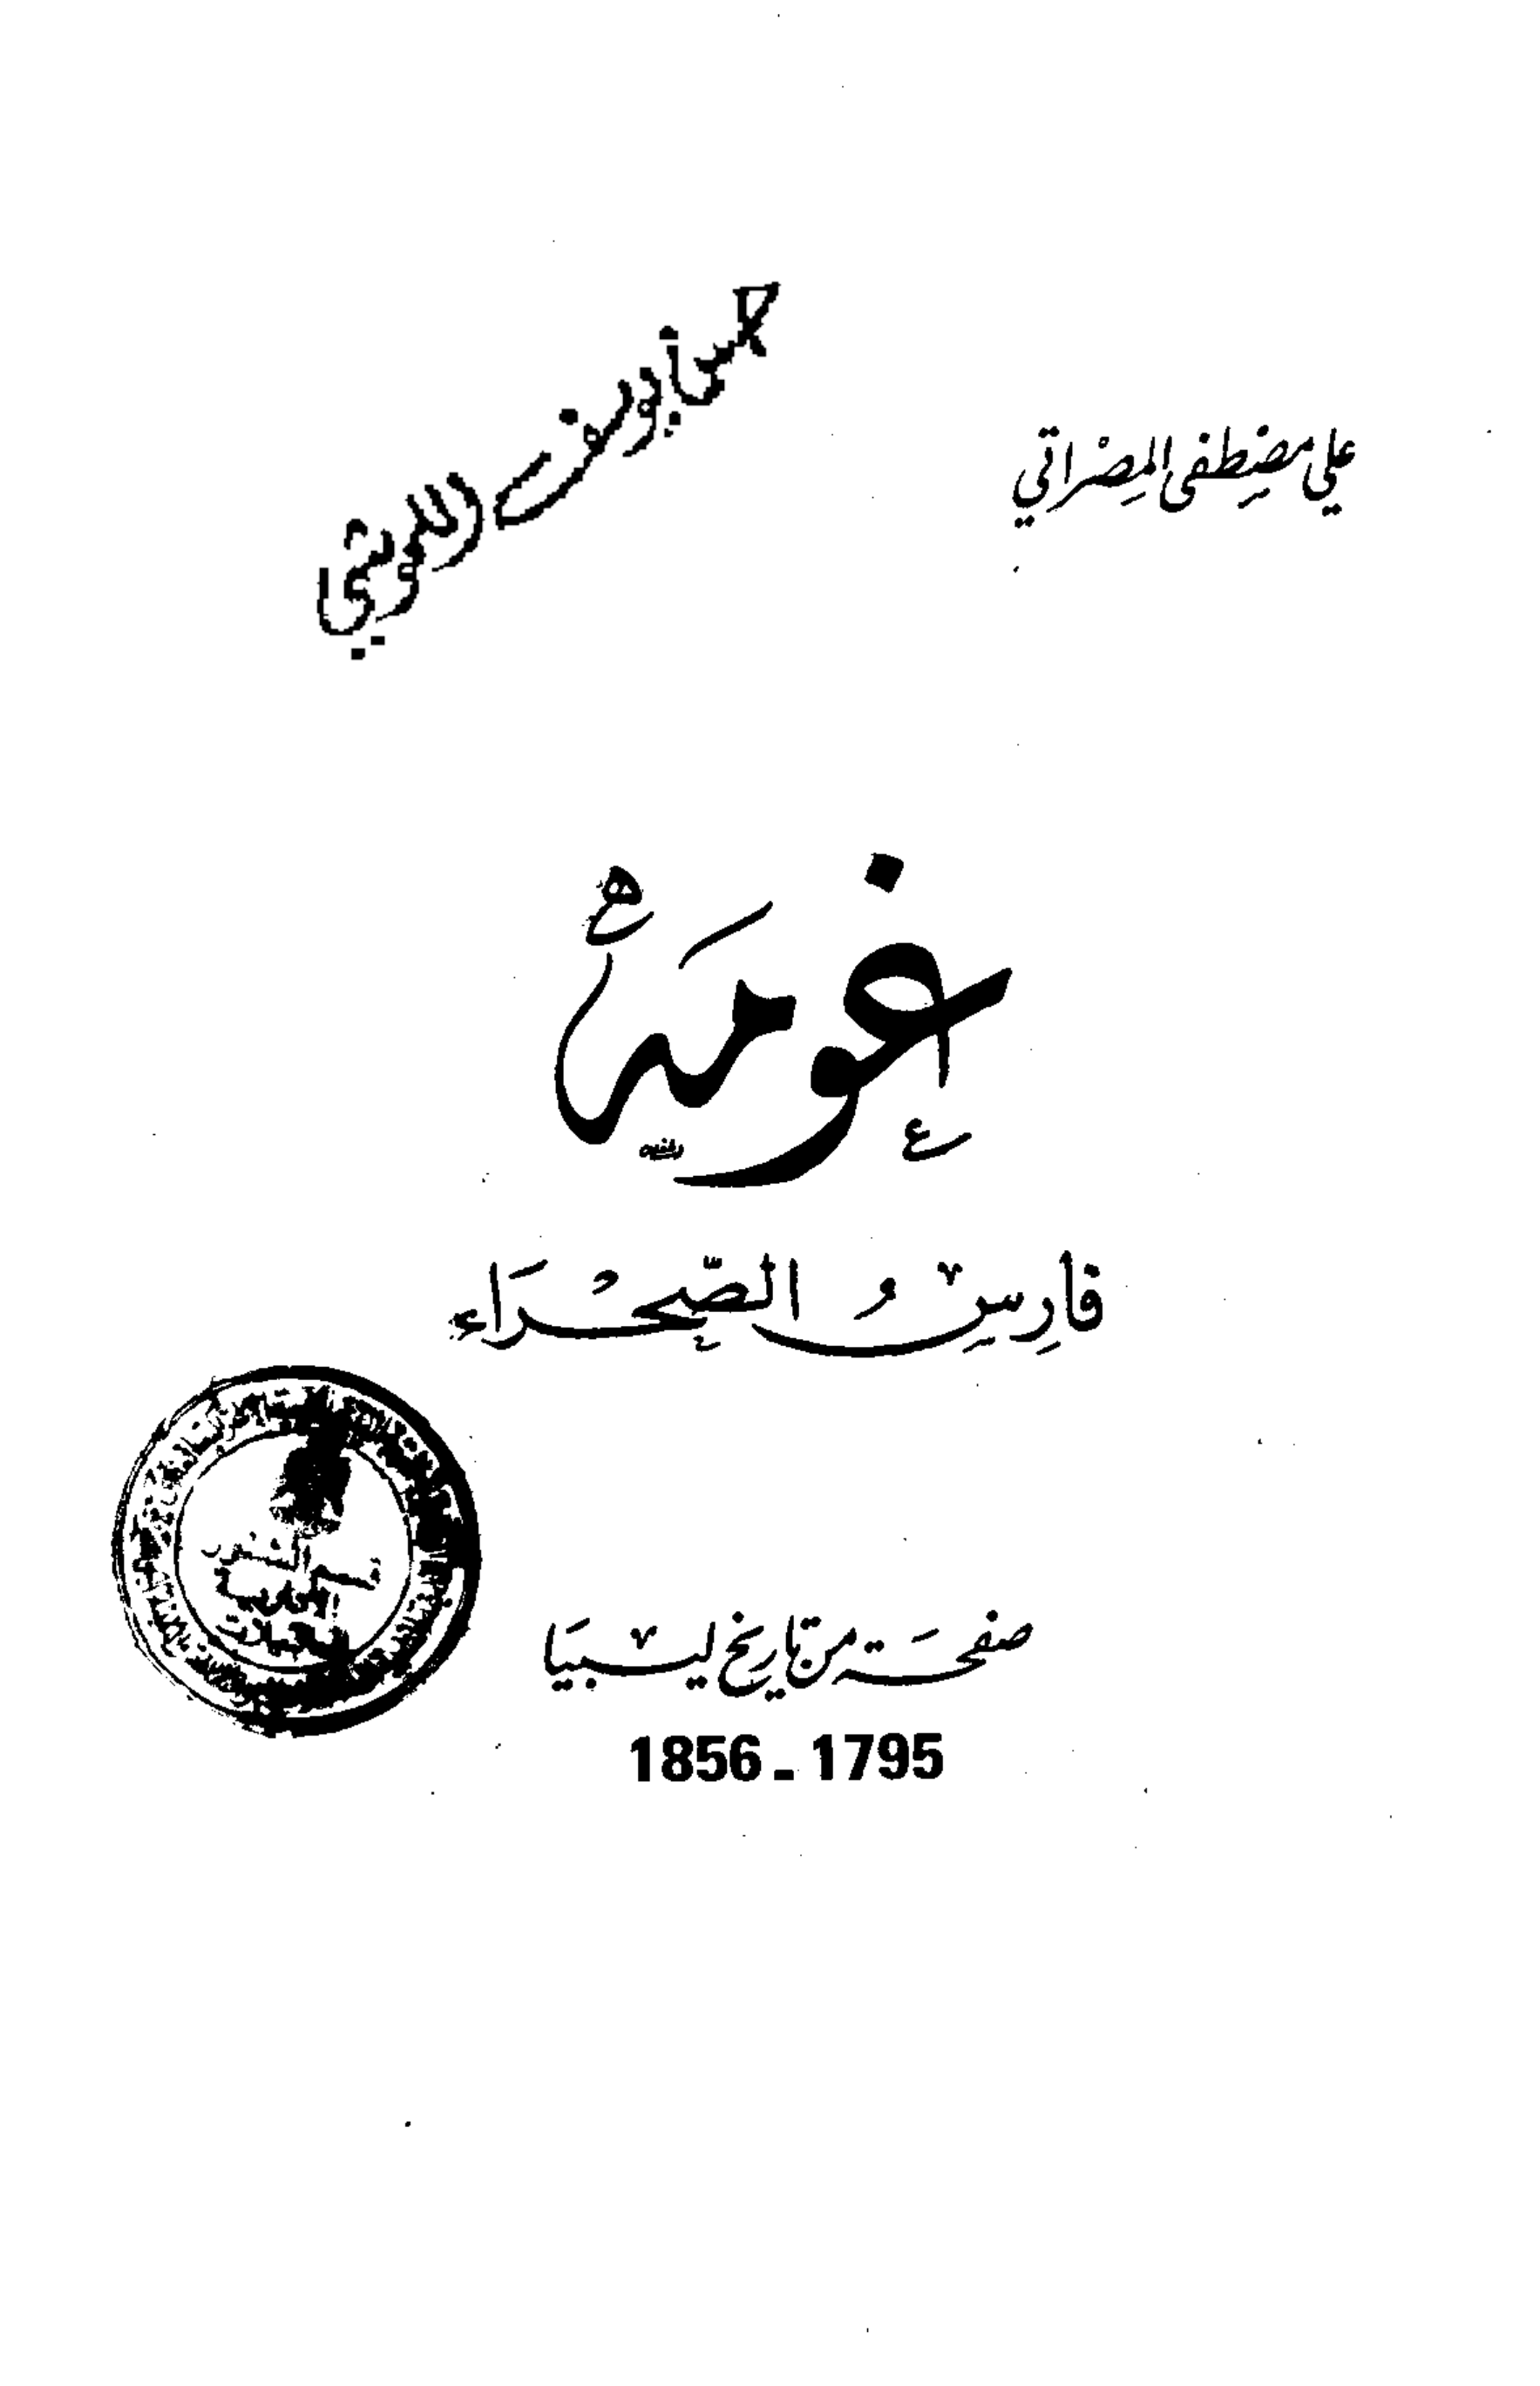 علي مصطفى المصراتي
غومة
فارس الصحراء
صفحة من تاريخ ليبيا
1856 - 1795